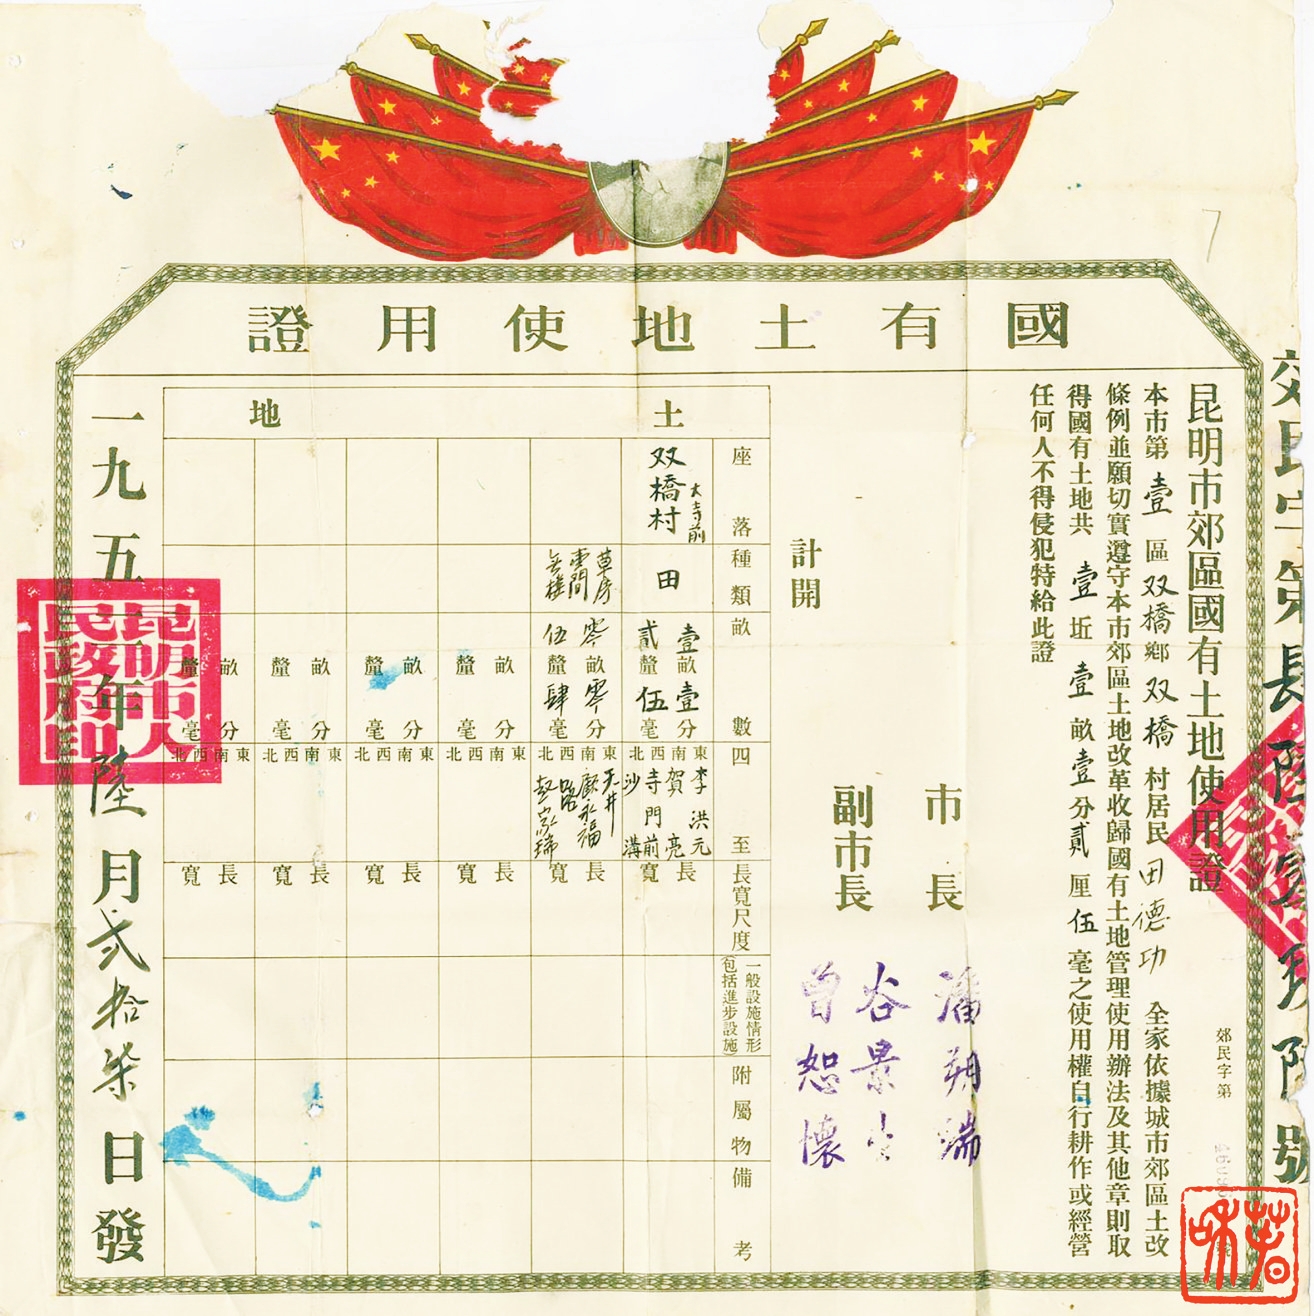 國有土地使用證
昆明市郊區國有土地使用證
郊民字第
本市第壹區双橋鄉双橋村居民田德功全家依據城市郊區土改
條例並願切實遵守本市郊區土地改革收歸國有土地管理使用辦法及其他章則取
得國有土地共壹坵壹畝壹分貳厘伍毫之使用權自行耕作或經營
任何人不得侵犯特給此證
市長 潘朔端
副市長 谷景生
曾恕懷
計開
土地
座落
種類
畝數
四至
長寬尺度
一般設施情形
(包括進步設施)
附屬物
備考
大寺前
双橋村
田
壹畝壹分
貳釐伍毫
東南西北
李洪元
賀亮
寺門前
沙溝
長寬
草房
壹間
無樓
零畝零分
伍釐肆毫
東南西北
天井
嚴永福
路
趙家瑞
長寬
畝分
釐毫
東南西北
長寬
畝分
釐毫
東南西北
長寬
畝分
釐毫
東南西北
長寬
畝分
釐毫
東南西北
長寬
一九五一年陸月貳拾柒日發
昆明市人民政府印